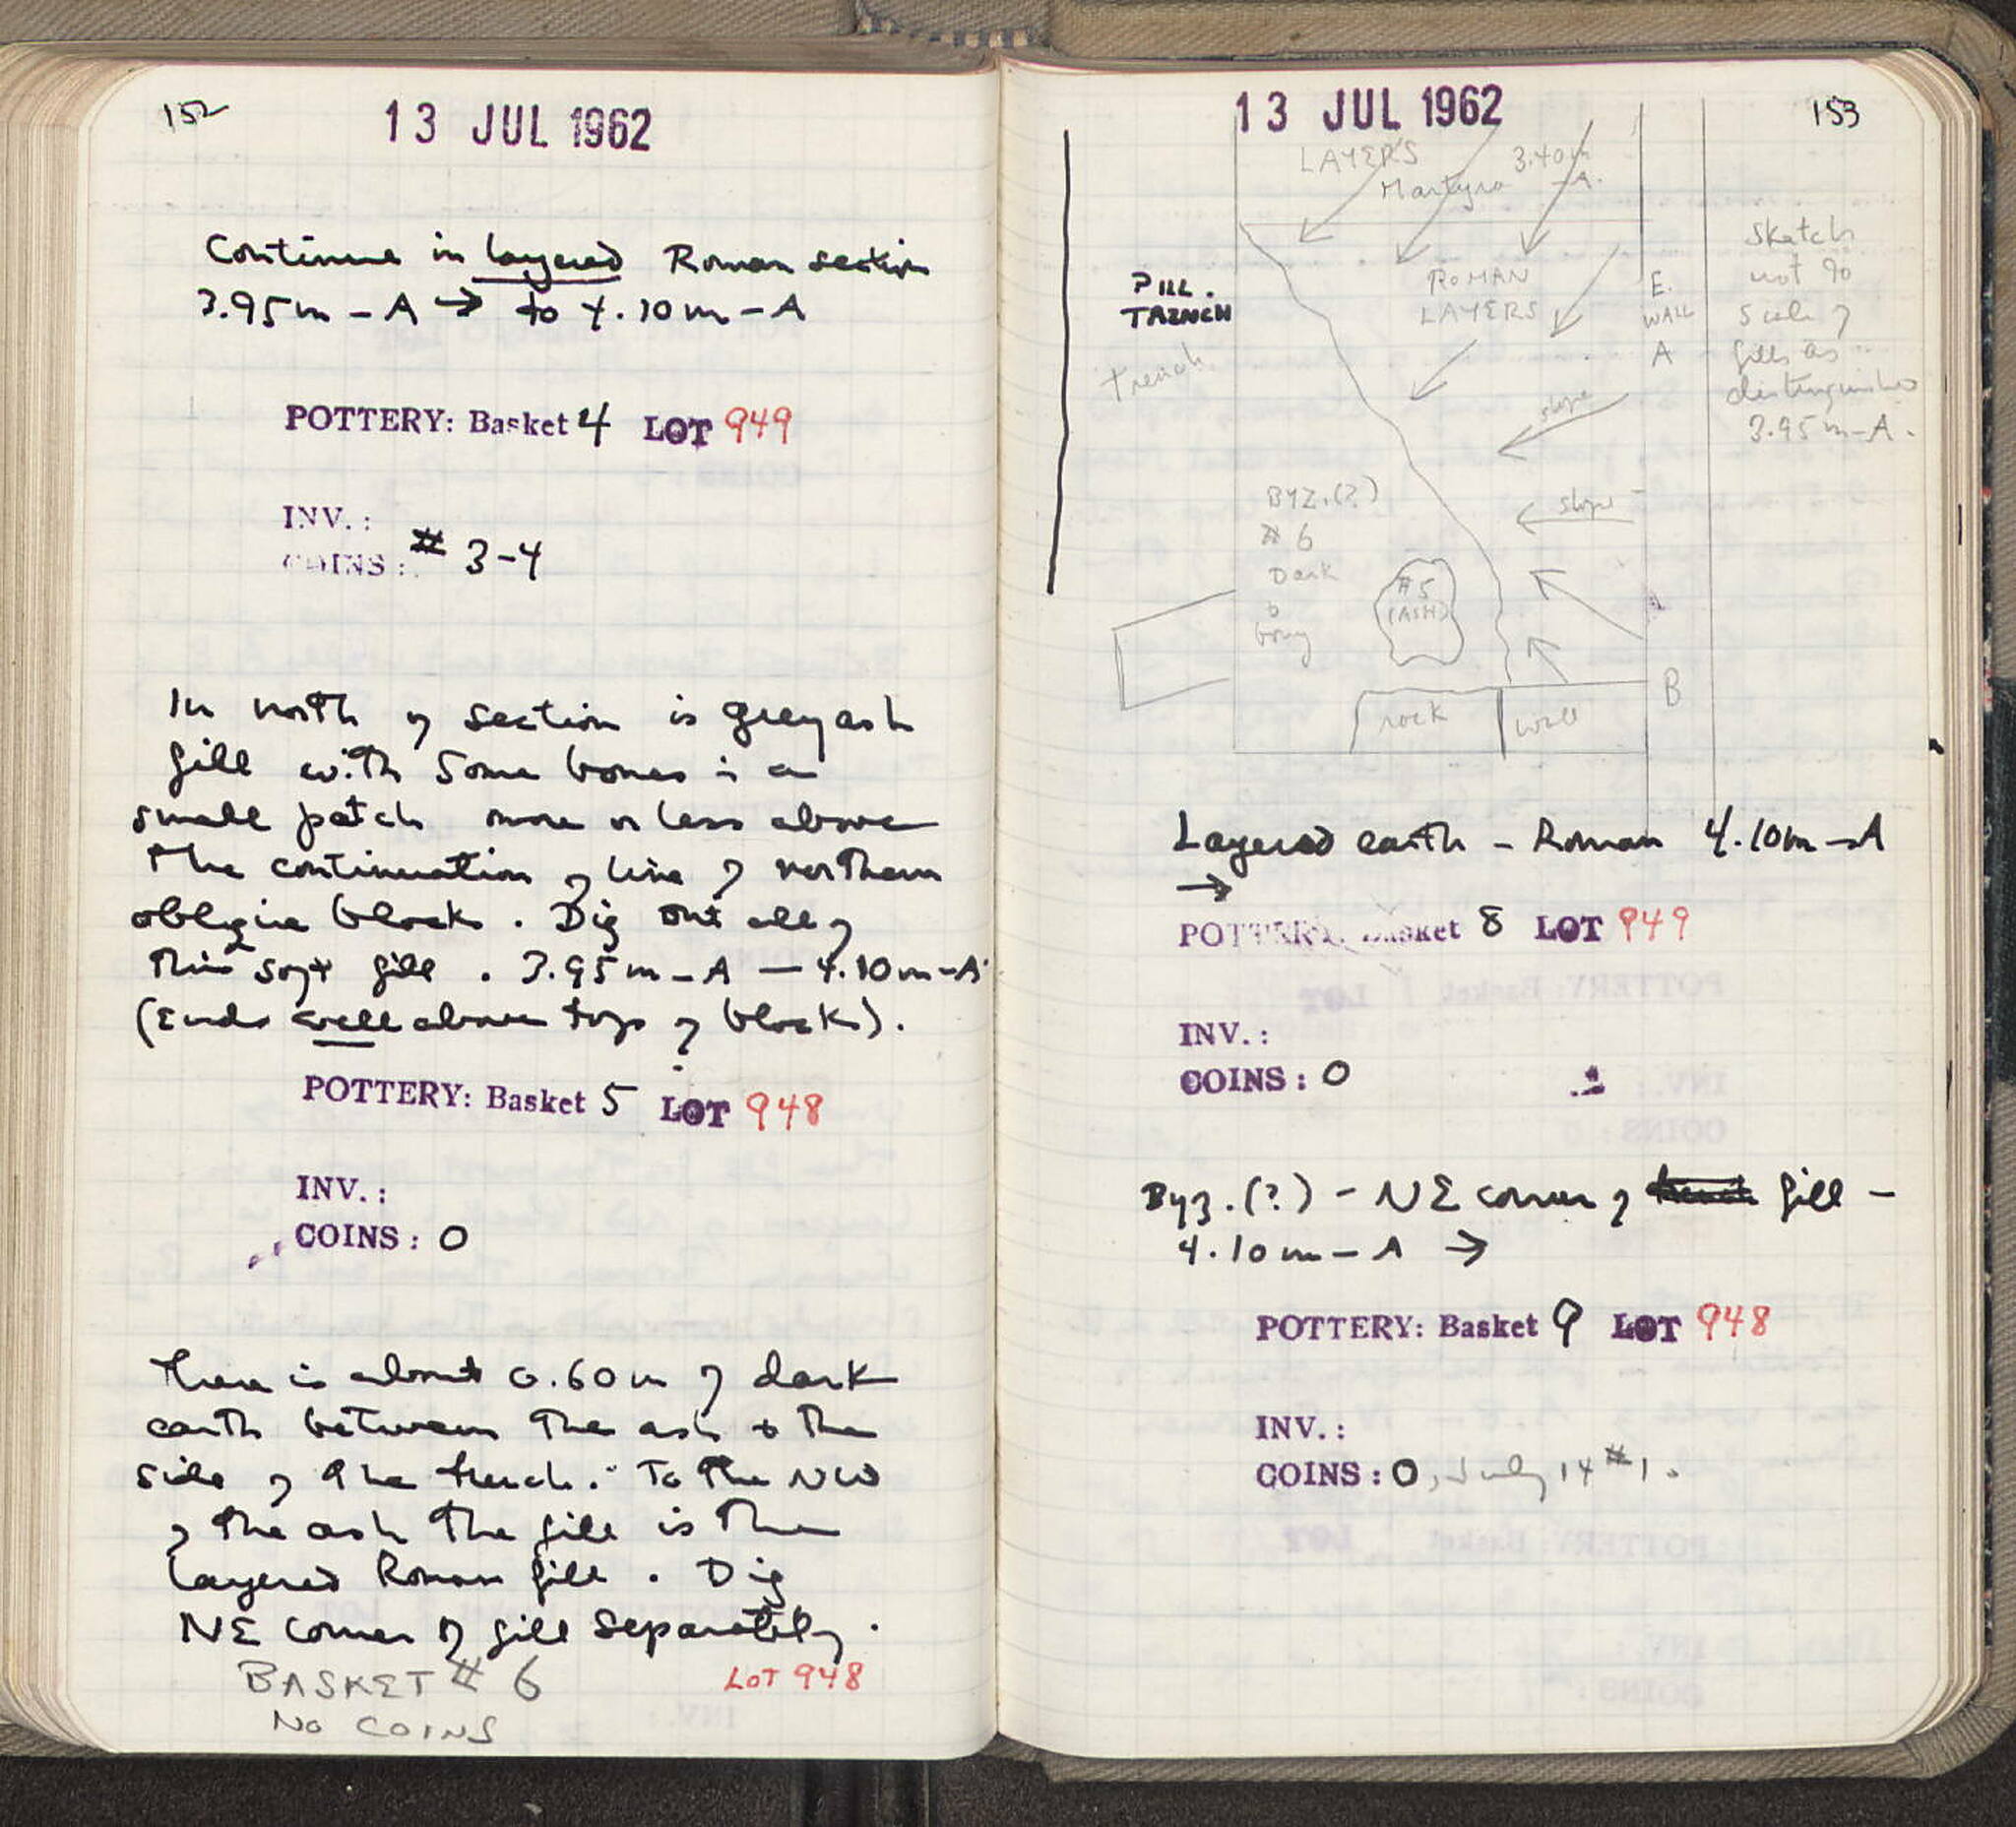 152
13 JUL 1962
Continue in layered Roman section
3.95m - A → to 4.10m - A
POTTERY: Basket 4 LOT 949
INV. :
COINS : # 3-4
In north of section is grey ash
fill with some bones in a
small patch more or less above
the continuation of line of northern
oblique block. Dig out all of
this soft fill. 3.95m - A — 4.10m - A
(Ends well above tops of blocks).
POTTERY: Basket 5 LOT 948
INV. :
COINS : 0
There is about 0.60m of dark
earth between the ash & the
side of the trench. To the NW
of the ash the fill is the
layered Roman fill. Dig
NE corner of fill separately.
BASKET # 6 LOT 948
NO COINS
153
13 JUL 1962
LAYERS 3.40m
-A.
PILL.
TRENCH
trench
ROMAN
LAYERS
E.
WALL
A
Sketch
not to
scale of
fills as
distinguished
3.95m-A.
slope
slope
BYZ.(?)
# 6
Dark
&
bony
#5
(ASH)
B
rock
wall
Layered earth - Roman 4.10m - A
→
POTTERY: Basket 8 LOT 949
INV. :
COINS : 0
Byz. (?) - NE corner of fill -
4.10m - A →
POTTERY: Basket 9 LOT 948
INV. :
COINS : 0, July 14 #1.